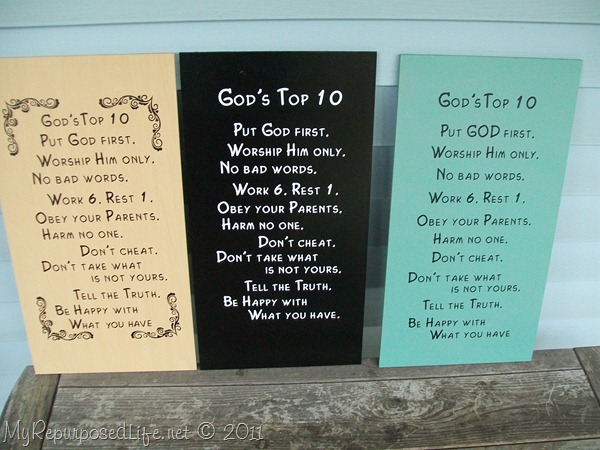 God's Top 10
Put God first.
Worship Him only.
No bad words.
Work 6. Rest 1.
Obey your Parents.
Harm no one.
Don't cheat.
Don't take what
is not yours.
Tell the Truth.
Be Happy with
What you have
God's Top 10
Put God first.
Worship Him only.
No bad words.
Work 6. Rest 1.
Obey your Parents.
Harm no one.
Don't cheat.
Don't take what
is not yours.
Tell the Truth.
Be Happy with
What you have.
God's Top 10
Put GOD first.
Worship Him only.
No bad words.
Work 6. Rest 1.
Obey your Parents.
Harm no one.
Don't cheat.
Don't take what
is not yours.
Tell the Truth.
Be Happy with
What you have
MyRepurposedLife.net © 2011